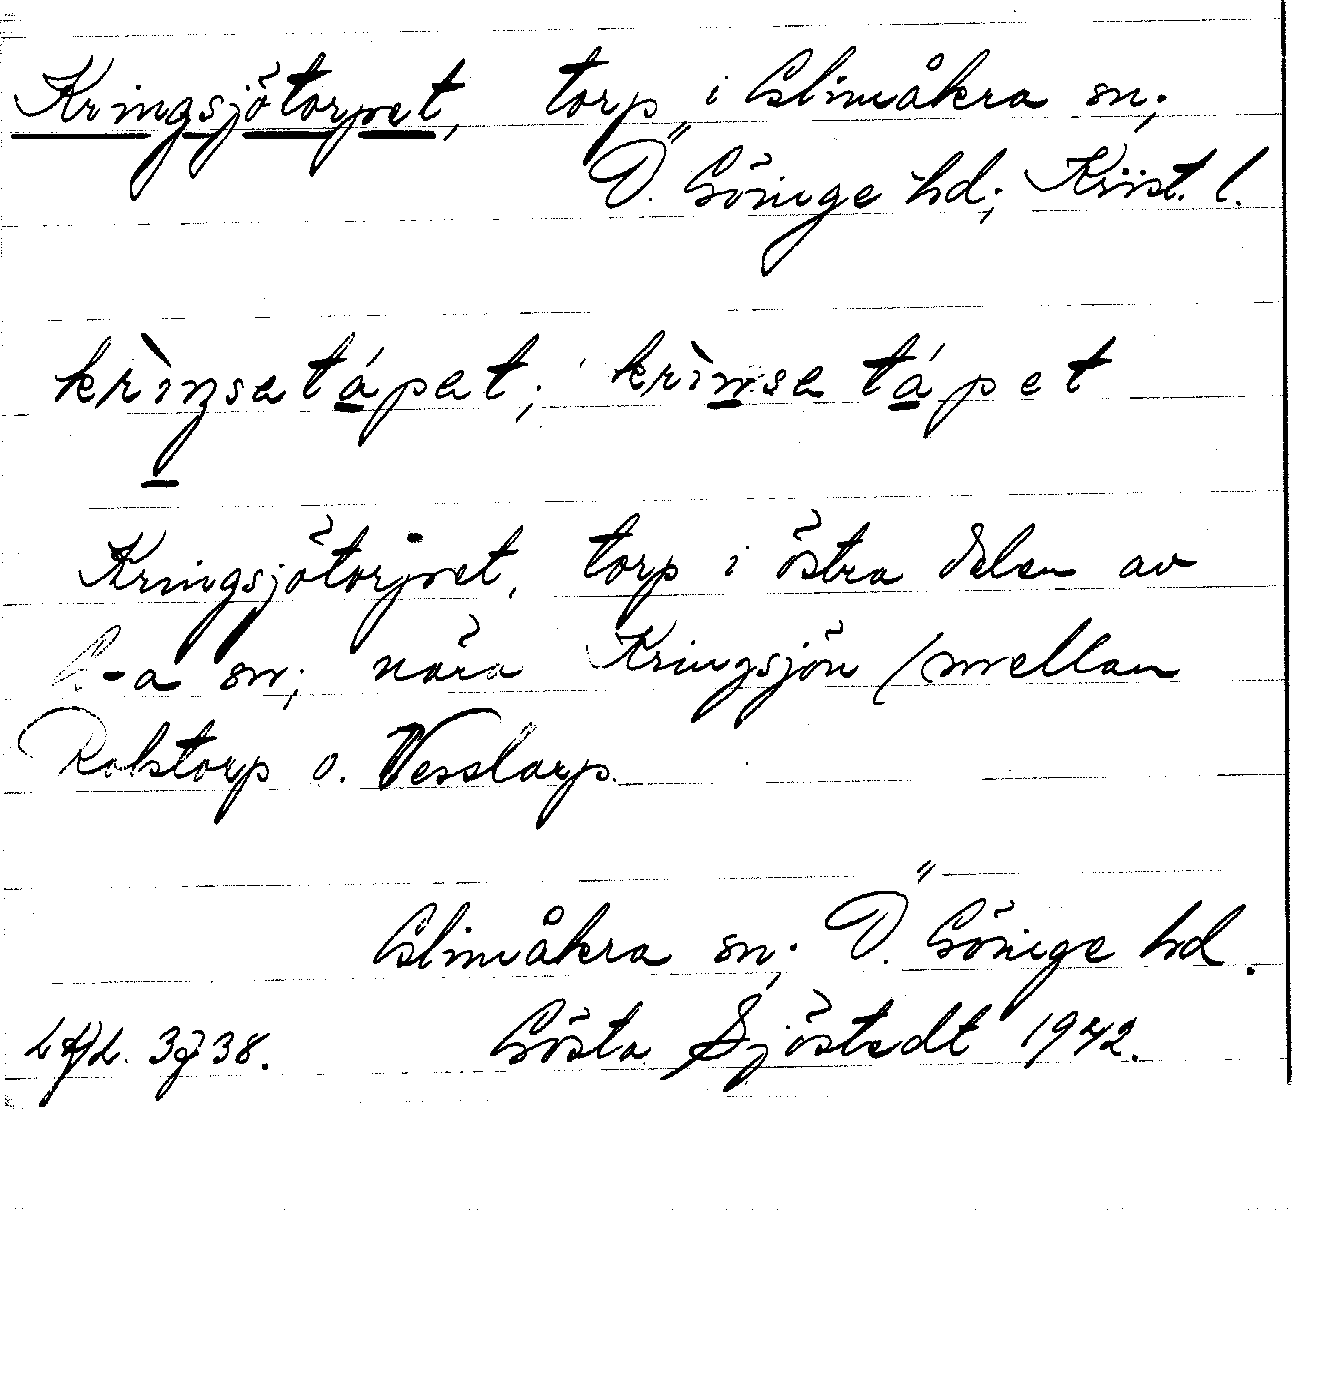 Kringsjötorpet, torp i Glimåkra sn;
Ö. Göinge hd; Krist. l.
krìŋsetápet; krìnse tápet
Kringsjötorpet, torp i östra delen av
G-a sn; nära Kringsjön (mellan
Rakstorp o. Vesslarp.
Glimåkra sn; Ö. Göinge hd.
Gösta Sjöstedt 1942.